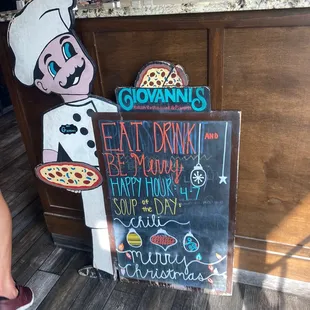 GIOVANNI'S
EAT DRINK AND
BE Merry
HAPPY HOUR
SOUP of the DAY:
chili
Merry
Christmas